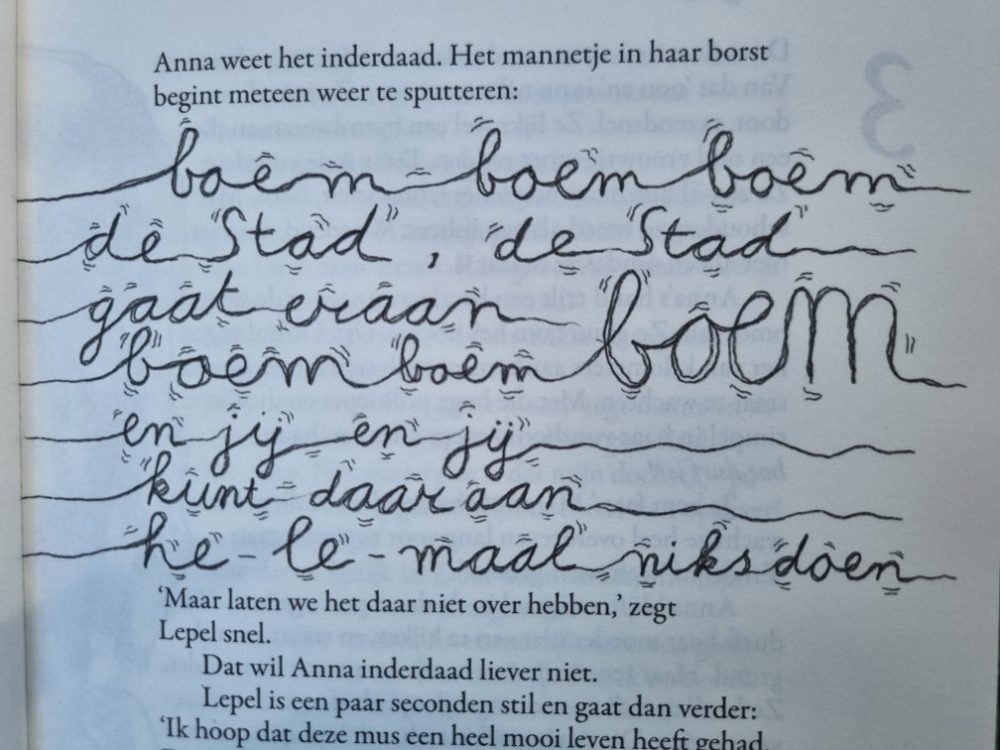 Anna weet het inderdaad. Het mannetje in haar borst
begint meteen weer te sputteren:
boem - boem boem
de stad, de stad
gaat eraan
boem boem boem
en jij en jij
kunt daaraan
he - le - maal niks doen
‘Maar laten we het daar niet over hebben,’ zegt
Lepel snel.
Dat wil Anna inderdaad liever niet.
Lepel is een paar seconden stil en gaat dan verder:
‘Ik hoop dat deze mus een heel mooi leven heeft gehad.